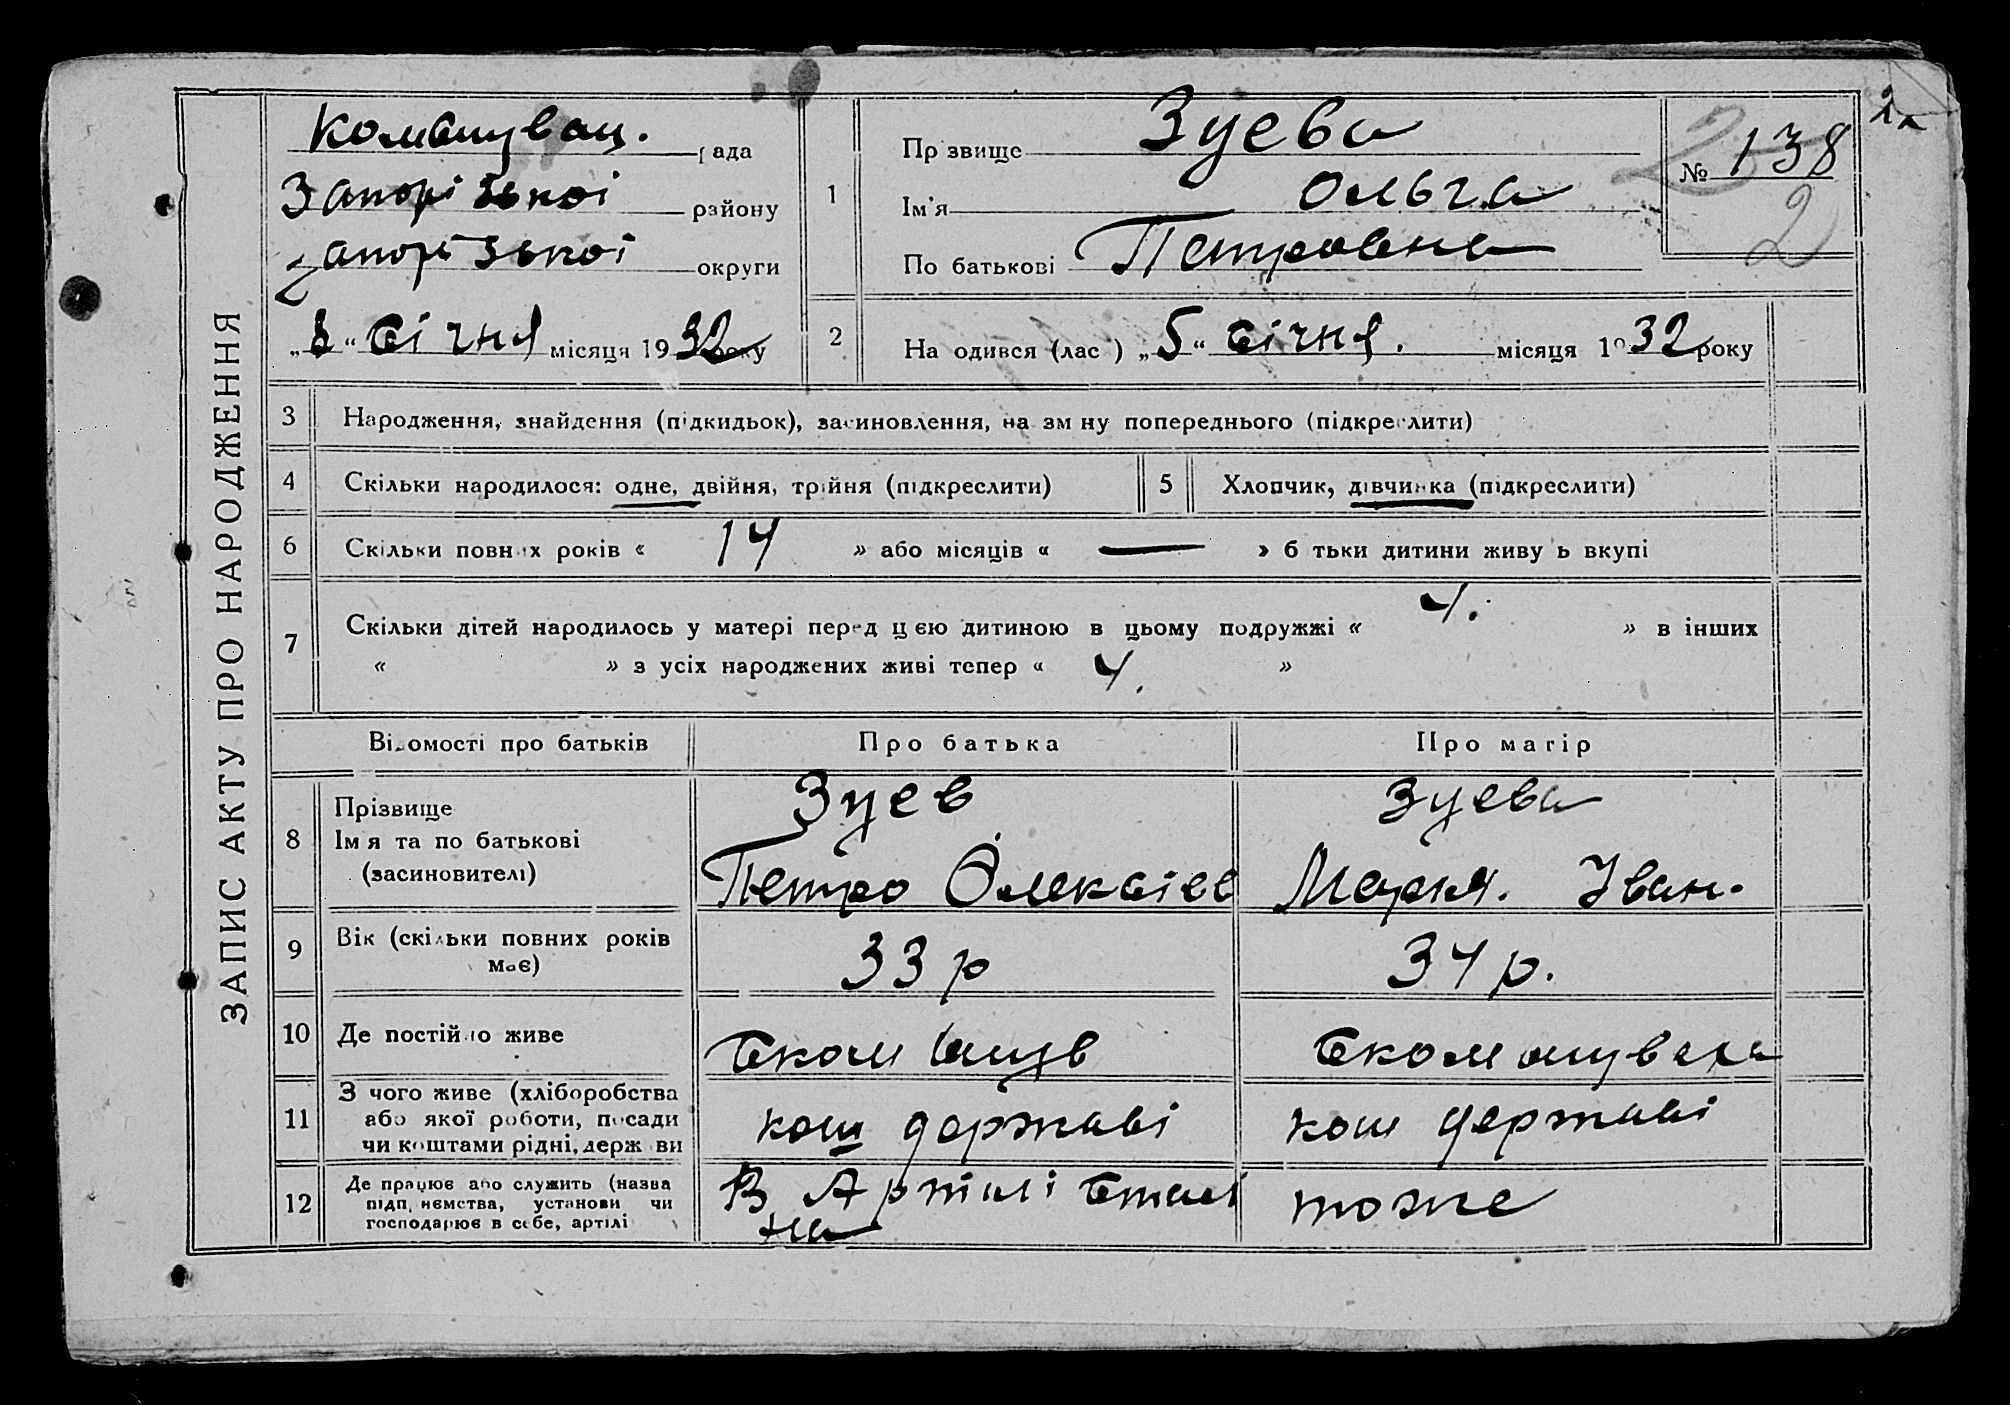 ЗАПИС АКТУ ПРО НАРОДЖЕННЯ
Комишувац. рада
Запорізькоі району
Запорізькоі округи
„8“ січня місяця 1932 року
1
Прізвище Зуева
Ім'я Ольга
По батькові Петровна
№ 138
2
2 На одився (лас ) „5“ січня. місяця 1932 року
3 Народження, знайдення (підкидьок), засиновлення, на зм ну попереднього (підкреслити)
4 Скільки народилося: одне, двійня, трійня (підкреслити)
5 Хлопчик, дівчинка (підкреслити)
6 Скільки повних років « 14 » або місяців « — » б тьки дитини живу ь вкупі
7 Скільки дітей народилось у матері перед цією дитиною в цьому подружжі « 4. » в інших
« » з усіх народжених живі тепер « 4. »
Відомості про батьків Про батька Про матір
8 Прізвище
Імя та по батькові
(засиновителі)
Зуев
Петро Олексієв
Зуева
Мария. Іван.
9 Вік (скільки повних років
має)
33 р
34 р.
10 Де постійно живе
Скомишув
Скомишуваха
11 З чого живе (хліборобства
або якої роботи, посади
чи коштами рідні, держави
кош державі
кош державі
12 Де працює або служить (назва
підприємства, установи чи
господарює в себе, артілі
В Артилі Сталі
на
тоже